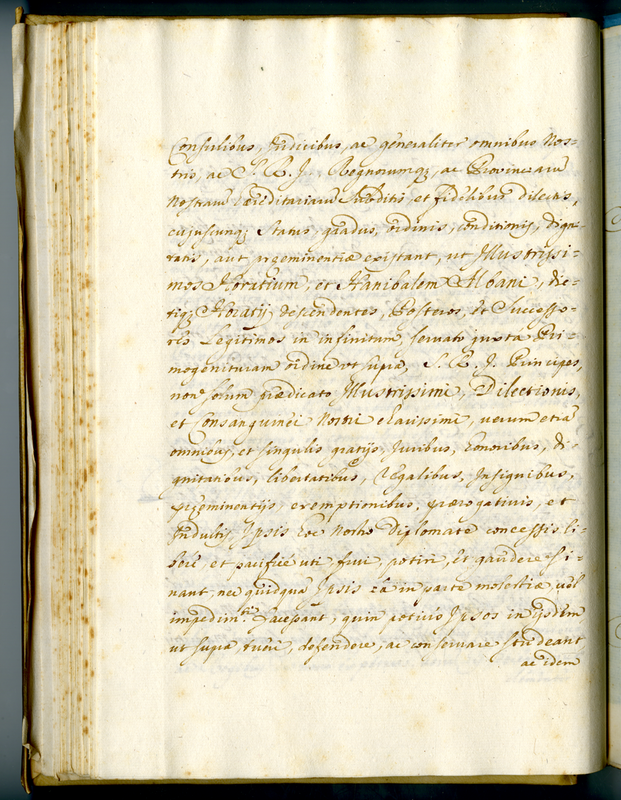 Consulibus, Iudicibus, ac generaliter omnibus Nos=
tris, ac S. R. I. Regnorumq; ac Provinciaru
Nostraru hæreditariaru Subditis, et fidelibus dilectis,
cujuscunq; Status, gradus, ordinis, conditionis, digni
tatis, aut præeminentiæ existant, ut Illustrissi=
mos Horatium, et Hanibalem Albani, dic=
tiq; Horatij descendentes, Posteros, et Successo=
res Legitimos in infinitum, servato juxta Pri=
mogenituram ordine ut supra, S. R. I. Principes,
non solum prædicato Illustrissimi, Dilectionis,
et Consanguinei Nostri clarissimi, verum etiã
omnibus, et singulis gratijs, Juribus, honoribus, di
gnitatibus, libertatibus, Regalibus, Insignibus,
præeminentijs, exemptionibus, prærogativis, et
Indultis, Ipsis hoc Nostro Diplomate concessis li=
berè, et pacificè uti, frui, potiri, et gaudere si=
nant, nec quidqua Ipsis eã in parte molestiæ, vel
impedim.ti facessant, quin potius Ipsos in ijsdem
ut supra, tueri, defendere, ac conservare studeant
ac idem